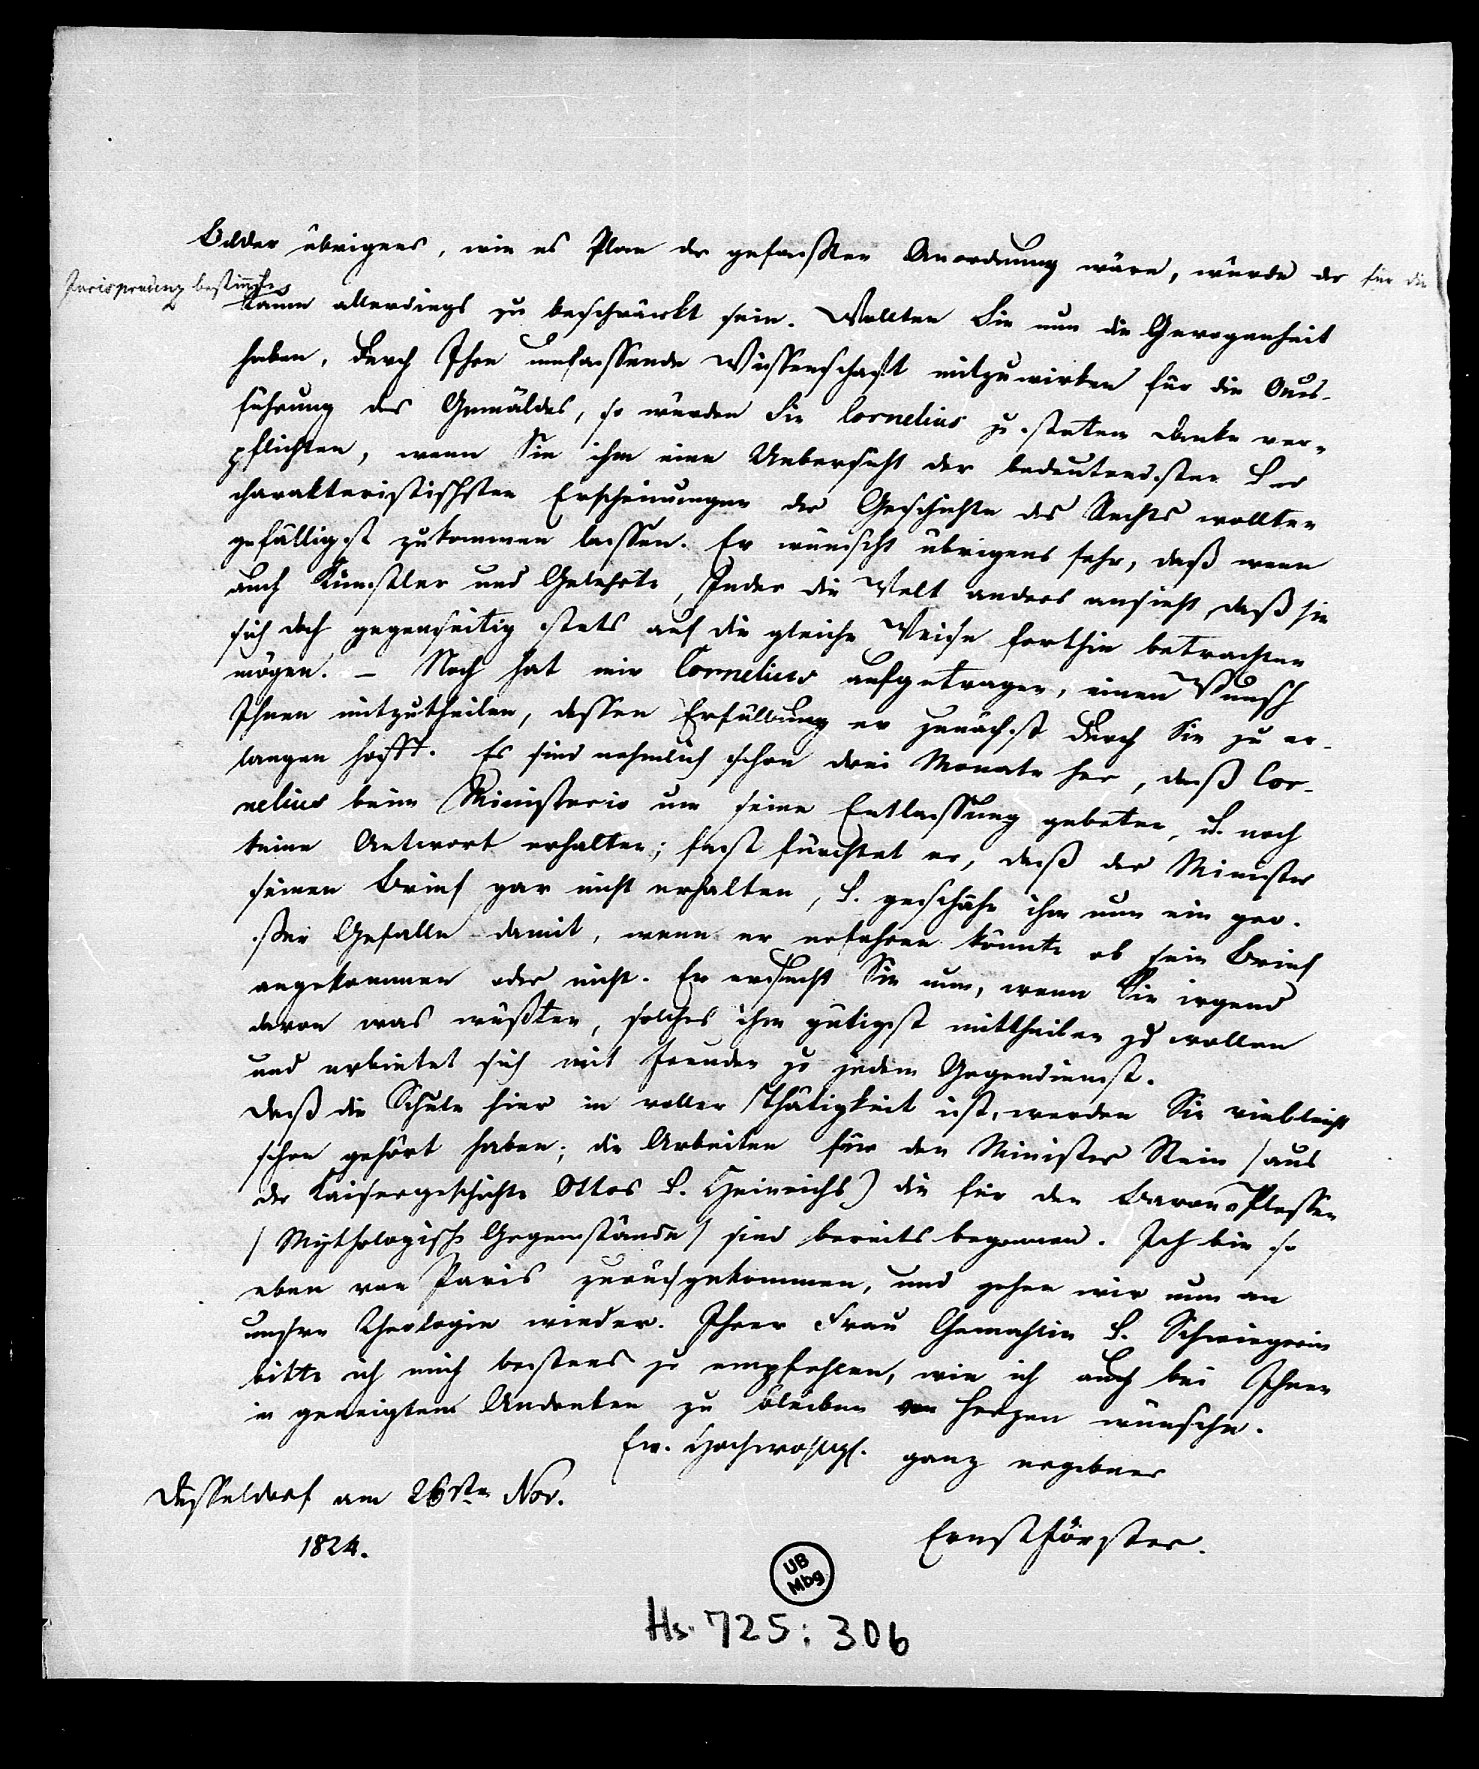 Bilder übrigens, wie es Plan der gefaßten Anordnung wäre, würde der für die
Jurisprudenz bestimmte
Raum allerdings zu beschränkt sein. Wollten Sie nun die Gewogenheit
haben, durch Ihre umfassende Wissenschaft mitzuwirken für die Aus-
führung des Gemäldes, so würden Sie Cornelius zu stetem Danke ver-
pflichten, wenn Sie ihm eine Uebersicht der bedeutendsten u.
charakteristischsten Erscheinungen der Geschichte des Rechts wollten
gefälligst zukommen lassen. Er wünscht übrigens sehr, daß wenn
auch Künstler und Gelehrte, Jeder die Welt anders ansieht, daß sie
sich doch gegenseitig stets auf die gleiche Weise forthin betrachten
mögen. – Noch hat mir Cornelius aufgetragen, einen Wunsch
Ihnen mitzutheilen, dessen Erfüllung er zunächst durch Sie zu er-
langen hofft. Es sind nehmlich schon drei Monate her, daß Cor-
nelius beim Ministerio um seine Entlassung gebeten, u. noch
keine Antwort erhalten; fast fürchtet er, daß der Minister
seinen Brief gar nicht erhalten, u. geschähe ihm nun ein gro-
ßer Gefalle damit, wenn er erfahren könnte ob sein Brief
angekommen oder nicht. Er ersucht Sie nun, wenn Sie irgend
davon was wüßten, solches ihm gütigst mittheilen zu wollen
und erbietet sich mit Freuden zu jedem Gegendienst.
Daß die Schule hier in voller Thätigkeit ist, werden Sie vielleicht
schon gehört haben; die Arbeiten für den Minister Stein (aus
der Kaisergeschichte Ottos u. Heinrichs) die für den Baron Plessen
(Mythologische Gegenstände) sind bereits begonnen. Ich bin so
eben von Paris zurückgekommen, und gehen wir nun an
unsere Theologie wieder. Ihrer Frau Gemahlin u. Schwiegerin
bitte ich mich bestens zu empfehlen, wie ich auch bei Ihnen
in geneigtem Andenken zu bleiben von Herzen wünsche.
Ew. Hochwohlgb. ganz ergebner
Düsseldorf am 26sten Nov.
1824.
Ernst Förster.
UB
Mbg
Hs. 725: 306